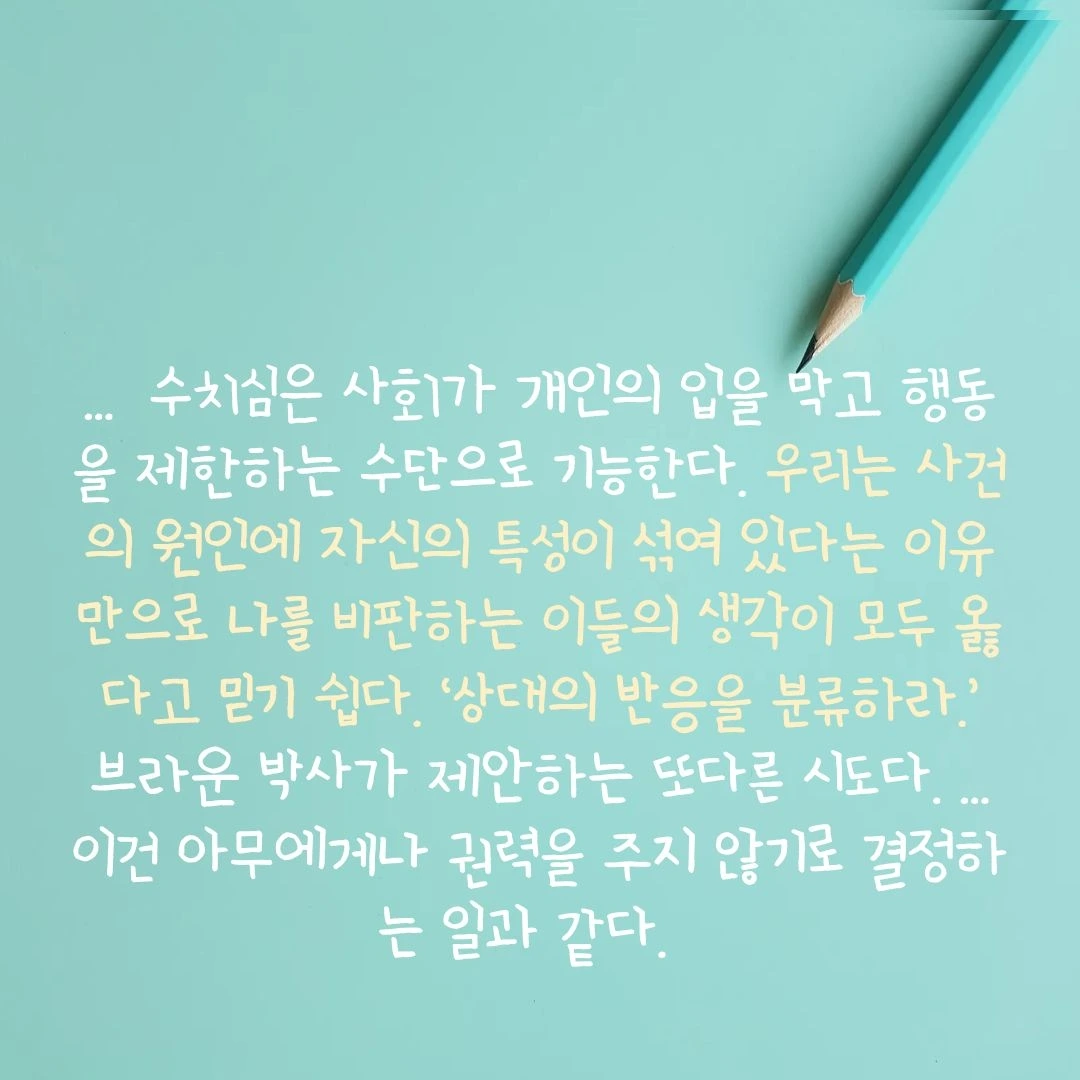 ... 수치심은 사회가 개인의 입을 막고 행동
을 제한하는 수단으로 기능한다. 우리는 사건
의 원인에 자신의 특성이 섞여 있다는 이유
만으로 나를 비판하는 이들의 생각이 모두 옳
다고 믿기 쉽다. ‘상대의 반응을 분류하라.’
브라운 박사가 제안하는 또다른 시도다. ...
이건 아무에게나 권력을 주지 않기로 결정하
는 일과 같다.